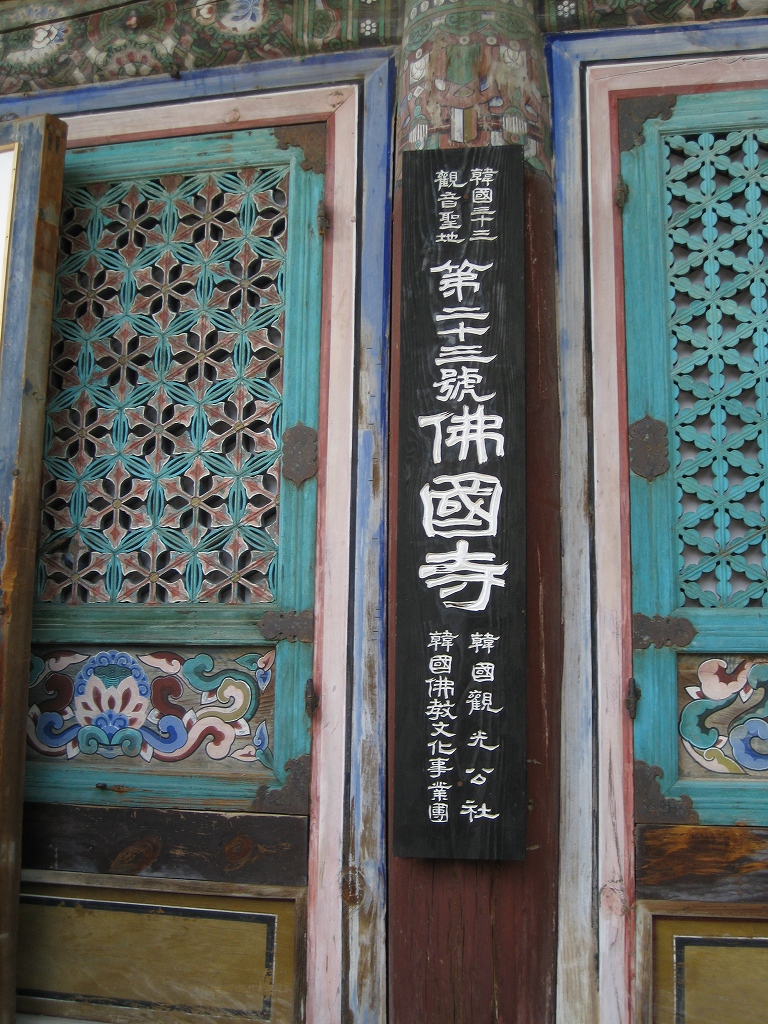 韓國三十三
觀音聖地
第二十三號
佛國寺
韓國觀光公社
韓國佛敎文化事業團